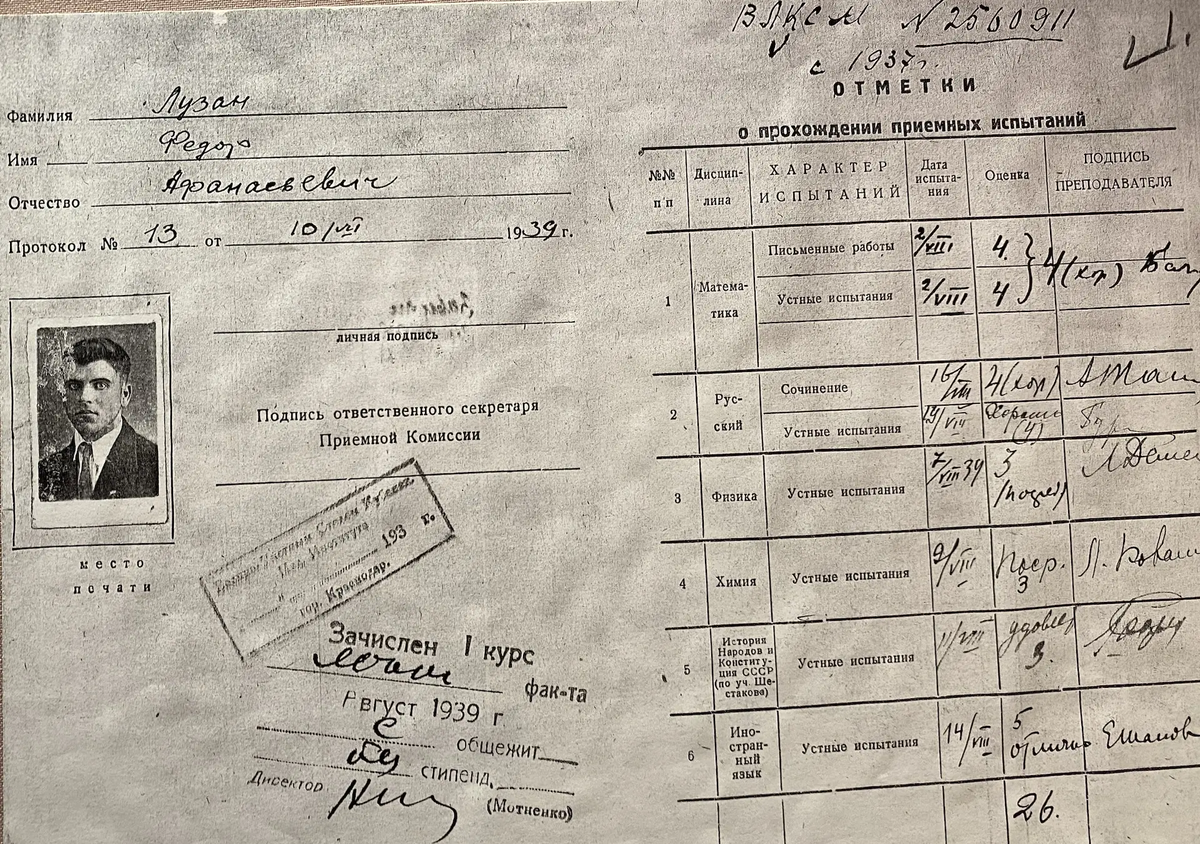 ВЛКСМ № 2560911
с 1937 г.
Фамилия Лузан
Имя Федор
Отчество Афанасьевич
Протокол № 13 от 10/VII 1939 г.
личная подпись
Подпись ответственного секретаря
Приемной Комиссии
место
печати
Института
193 г.
гор. Краснодар.
Зачислен I курс
фак-та
Август 1939 г
С общежит.
без стипенд.
Директор (Мотненко)
ОТМЕТКИ
о прохождении приемных испытаний
№№ пп Дисцип-лина ХАРАКТЕР ИСПЫТАНИЙ Дата испыта-ния Оценка ПОДПИСЬ ПРЕПОДАВАТЕЛЯ
1 Матема-тика Письменные работы 2/VIII 4
Устные испытания 2/VIII 4 4 (хор)
2 Рус-ский Сочинение 16/VIII 4 (хор)
Устные испытания 19/VIII Хорошо (4)
3 Физика Устные испытания 7/VIII 39 3
4 Химия Устные испытания 9/VIII Поср. 3
5 История Народов и Конститу-ция СССР (по уч. Ше-стакова) Устные испытания 11/VIII 3.
6 Ино-стран-ный язык Устные испытания 14/VIII 5 отлично
26.